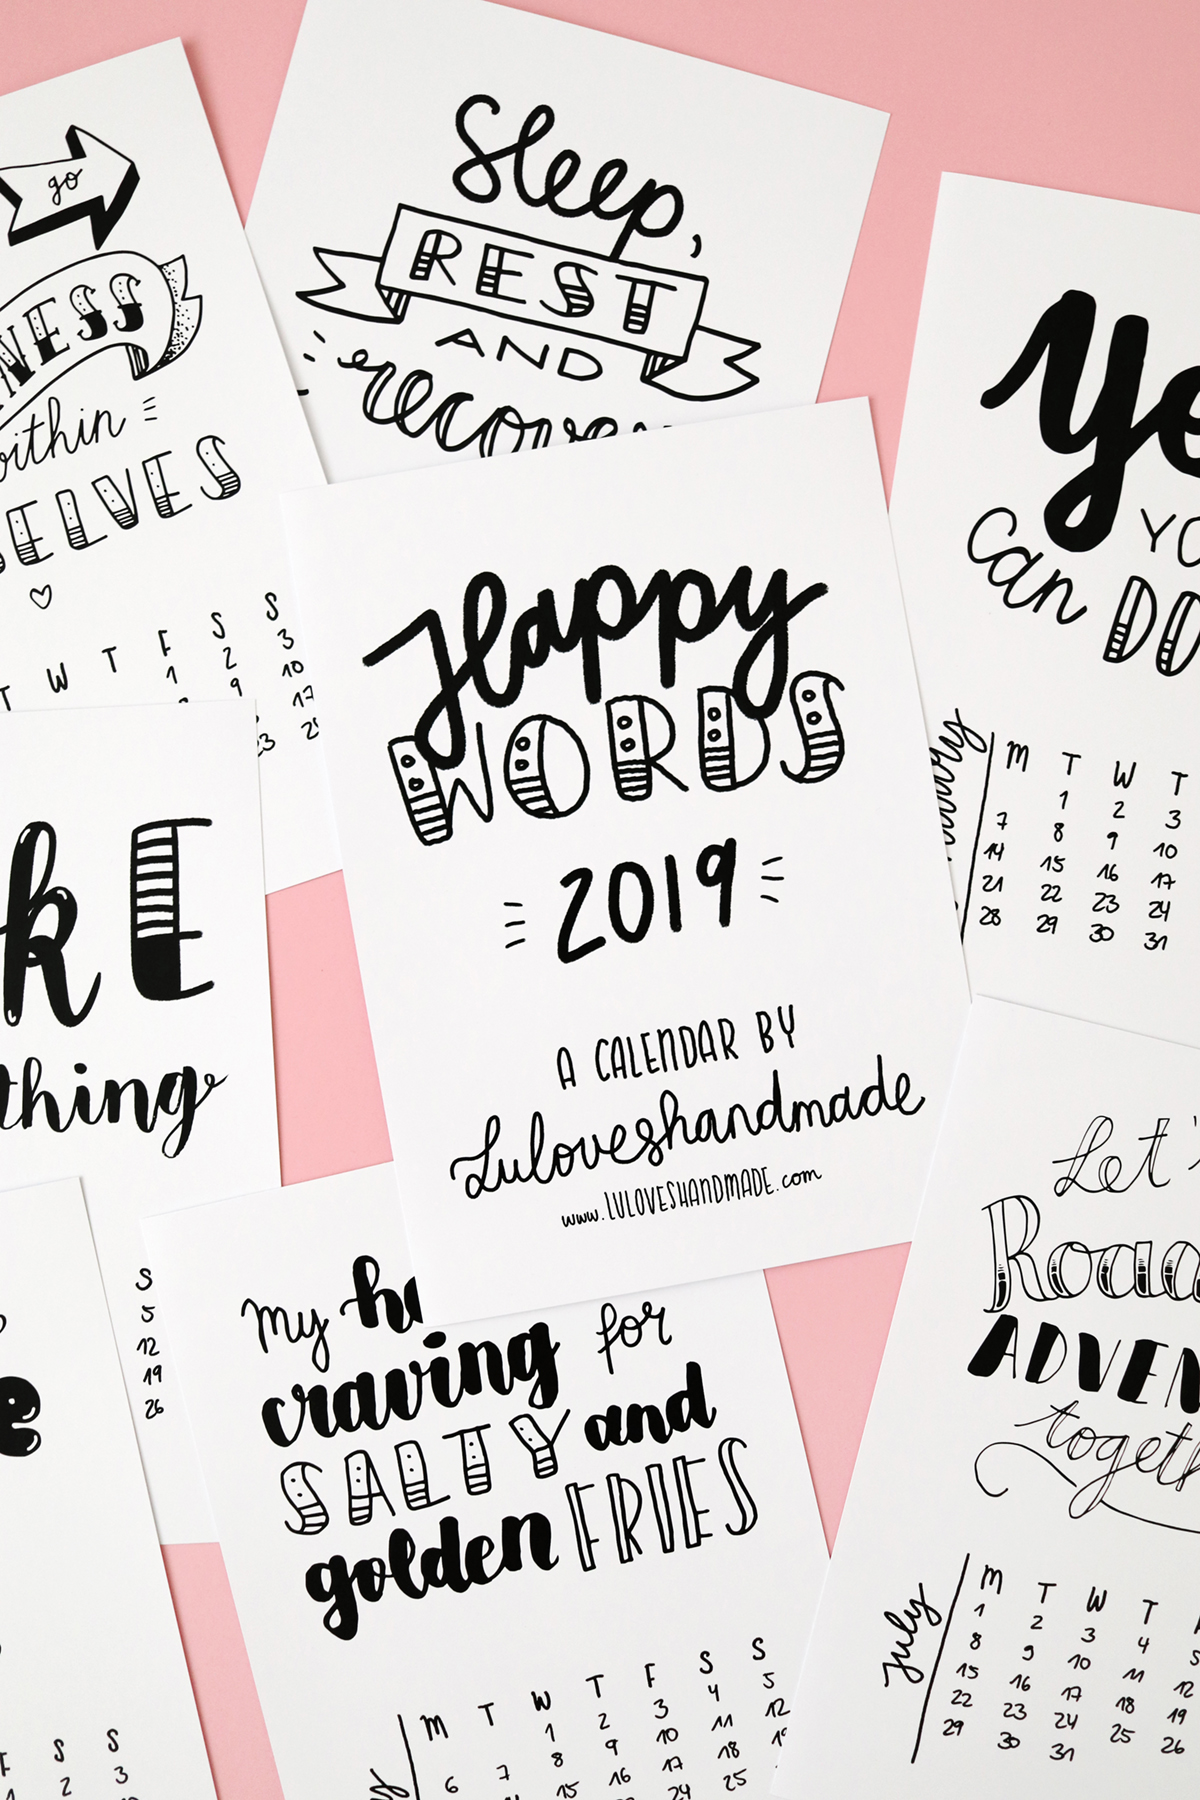 go
within
Sleep,
REST
AND
can DO
M T W T
1 2 3
7 8 9 10
14 15 16 17
21 22 23 24
28 29 30 31
F S S
1 2 3
9 10
17
Happy
WORDS
2019
A CALENDAR BY
Luloveshandmade
www.LULOVESHANDMADE.com
thing
S
5
12
19
26
My
craving for
SALTY and
golden FRIES
M T W T F S S
1 2 3 4 5
6 7 8 9 10 11 12
15 16 17 18
24 25
S S
2 3
Let's
July
M T W T
1 2 3 4 5
8 9 10 11 12
15 16 17 18 19
22 23 24 25 26
29 30 31